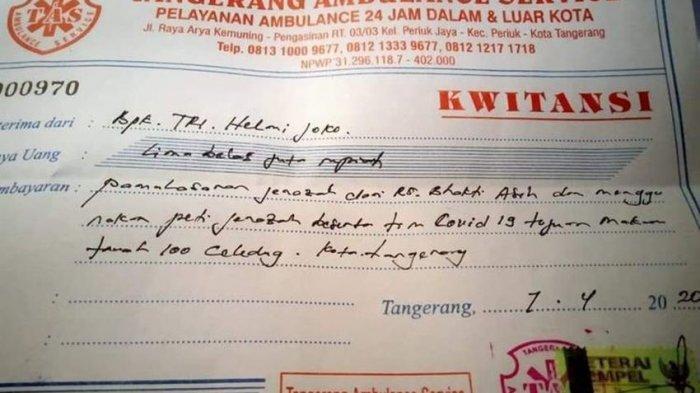 TANGERANG AMBULANCE SERVICE
PELAYANAN AMBULANCE 24 JAM DALAM & LUAR KOTA
Jl. Raya Arya Kemuning - Pengasinan RT. 03/03 Kel. Periuk Jaya - Kec. Periuk - Kota Tangerang
Telp. 0813 1000 9677, 0812 1333 9677, 0812 1217 1718
NPWP 31.296.118.7 - 402.000
TAS
AMBULANCE SERVICE
000970
KWITANSI
erima dari : Bpk. TRI. Helmi Joko.
ya Uang : Lima belas juta rupiah
mbayaran : pemulasaran jenazah dari RS. Bhakti Asih dan menggu
nakan peti jenazah beserta tim Covid 19 tujuan makam
tanah 100 Ciledug. Kota tangerang
Tangerang, 7 . 4 2020
TANGERA
ETERAI
EMPEL
Tangerang Ambulance Service